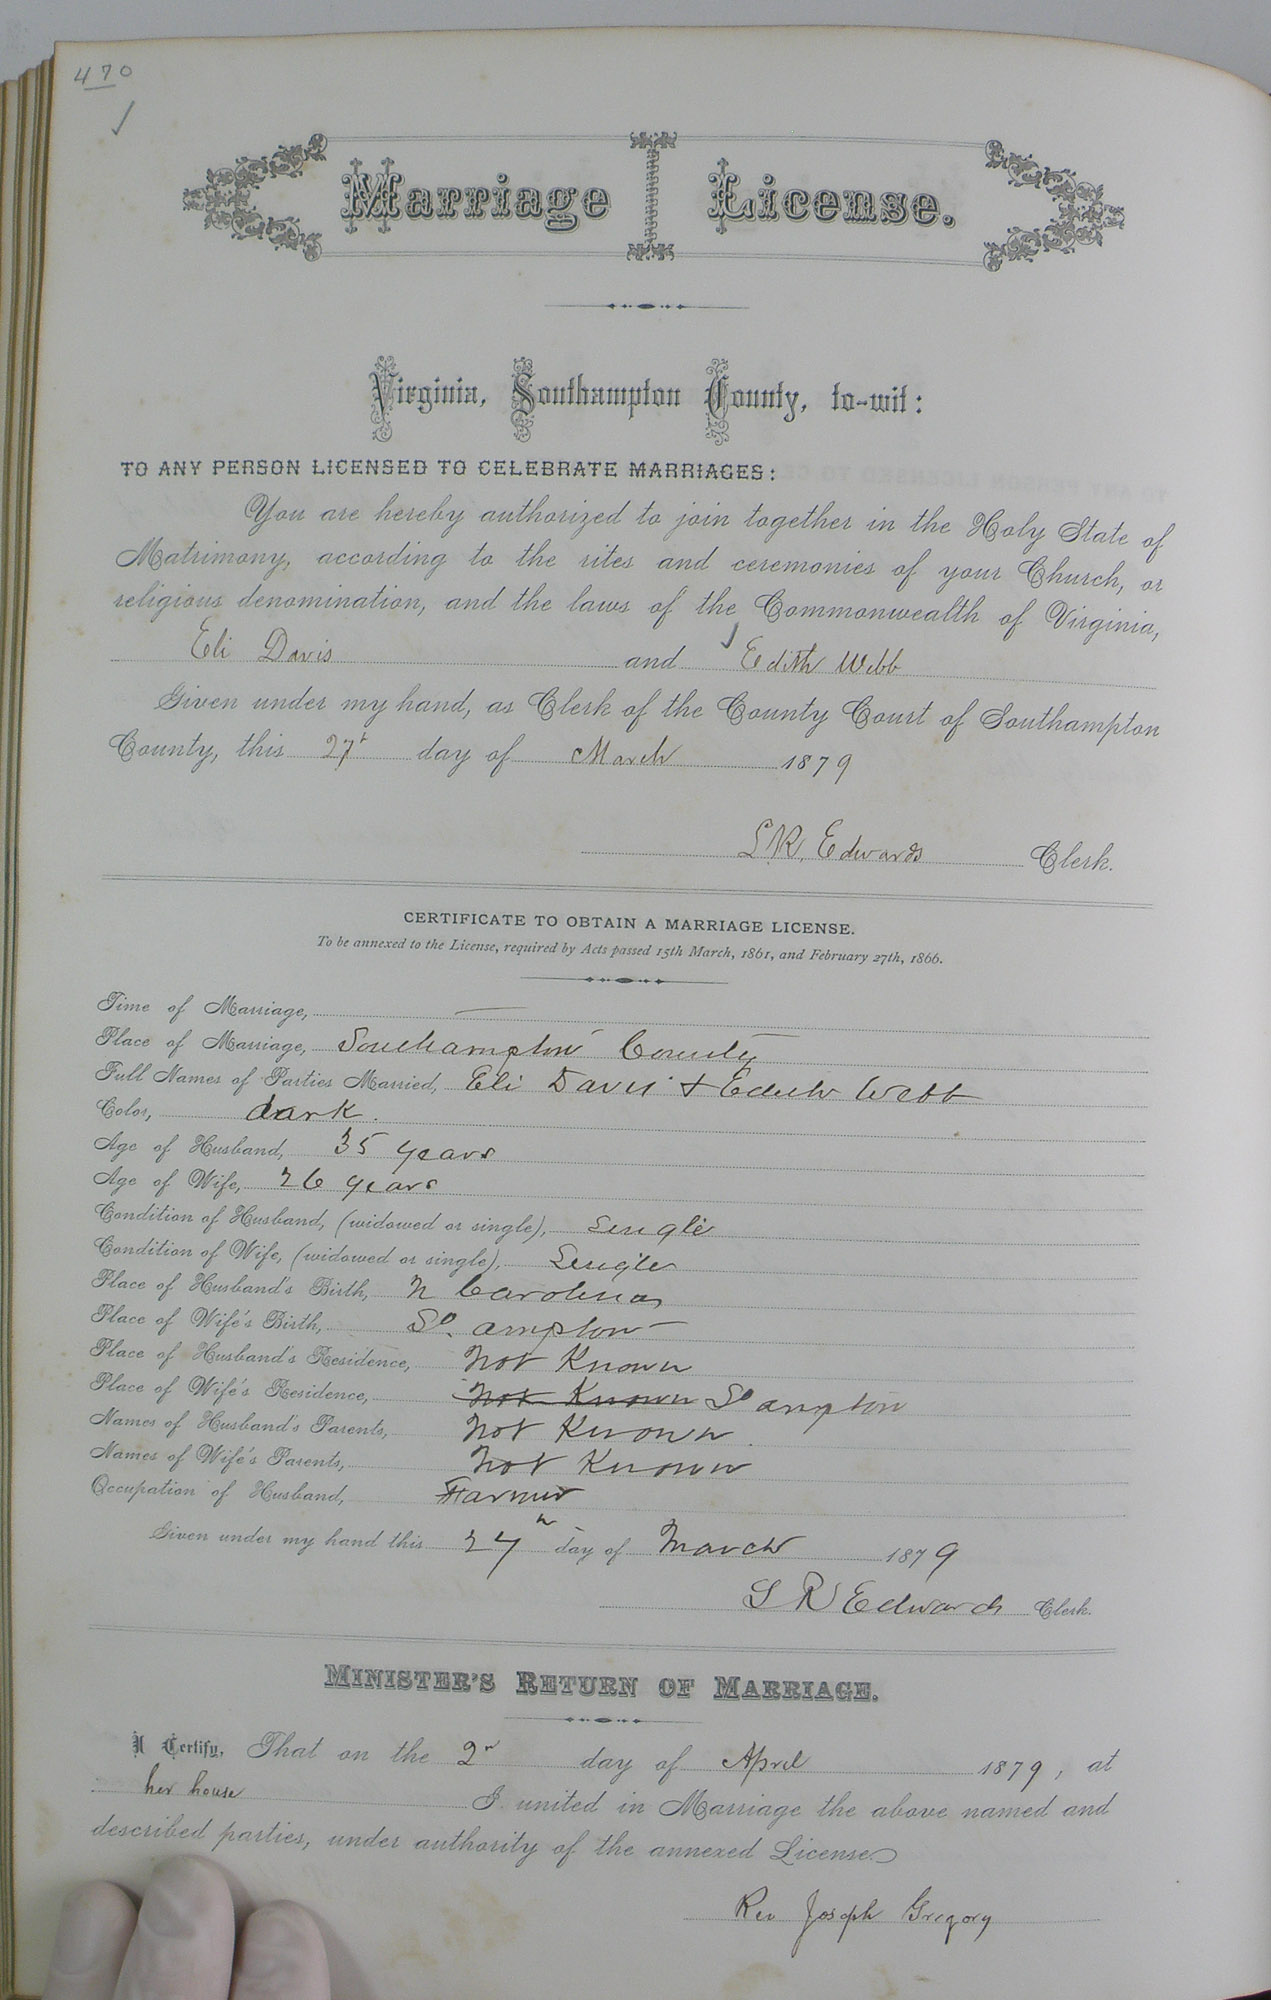 470
Marriage License.
Virginia, Southampton County, to-wit:
TO ANY PERSON LICENSED TO CELEBRATE MARRIAGES:
You are hereby authorized to join together in the Holy State of
Matrimony, according to the rites and ceremonies of your Church, or
religious denomination, and the laws of the Commonwealth of Virginia,
Eli Davis and Edith Webb
Given under my hand, as Clerk of the County Court of Southampton
County, this 27t day of March 1879
L R. Edwards Clerk.
CERTIFICATE TO OBTAIN A MARRIAGE LICENSE.
To be annexed to the License, required by Acts passed 15th March, 1861, and February 27th, 1866.
Time of Marriage, —
Place of Marriage, Southampton County
Full Names of Parties Married, Eli Davis + Edith Webb
Color, dark.
Age of Husband, 35 years
Age of Wife, 26 years
Condition of Husband, (widowed or single), Single
Condition of Wife, (widowed or single), Single
Place of Husband's Birth, N Carolina
Place of Wife's Birth, So. ampton
Place of Husband's Residence, Not Known
Place of Wife's Residence, Not Known So ampton
Names of Husband's Parents, Not Known
Names of Wife's Parents, Not Known
Occupation of Husband, Farmer
Given under my hand this 27th day of March 1879
L R Edwards Clerk.
MINISTER'S RETURN OF MARRIAGE.
I Certify, That on the 2n day of April 1879, at
her house I united in Marriage the above named and
described parties, under authority of the annexed License.
Rev Joseph Gregory